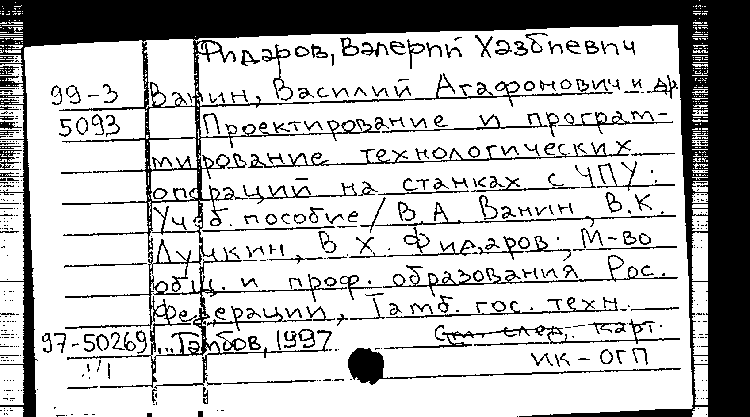 Фидаров, Валерий Хазбиевич
99-3 Ванин, Василий Агафонович и др
5093 Проектирование и програм-
мирование технологических
операций на станках с ЧПУ:
Учеб. пособие / В.А. Ванин, В.К.
Лучкин, В Х. Фидаров; М-во
общ. и проф. образования Рос.
Федерации, Тамб. гос. техн.
97-50269 ...Тамбов, 1997 См. след. карт.
ИК-ОГП